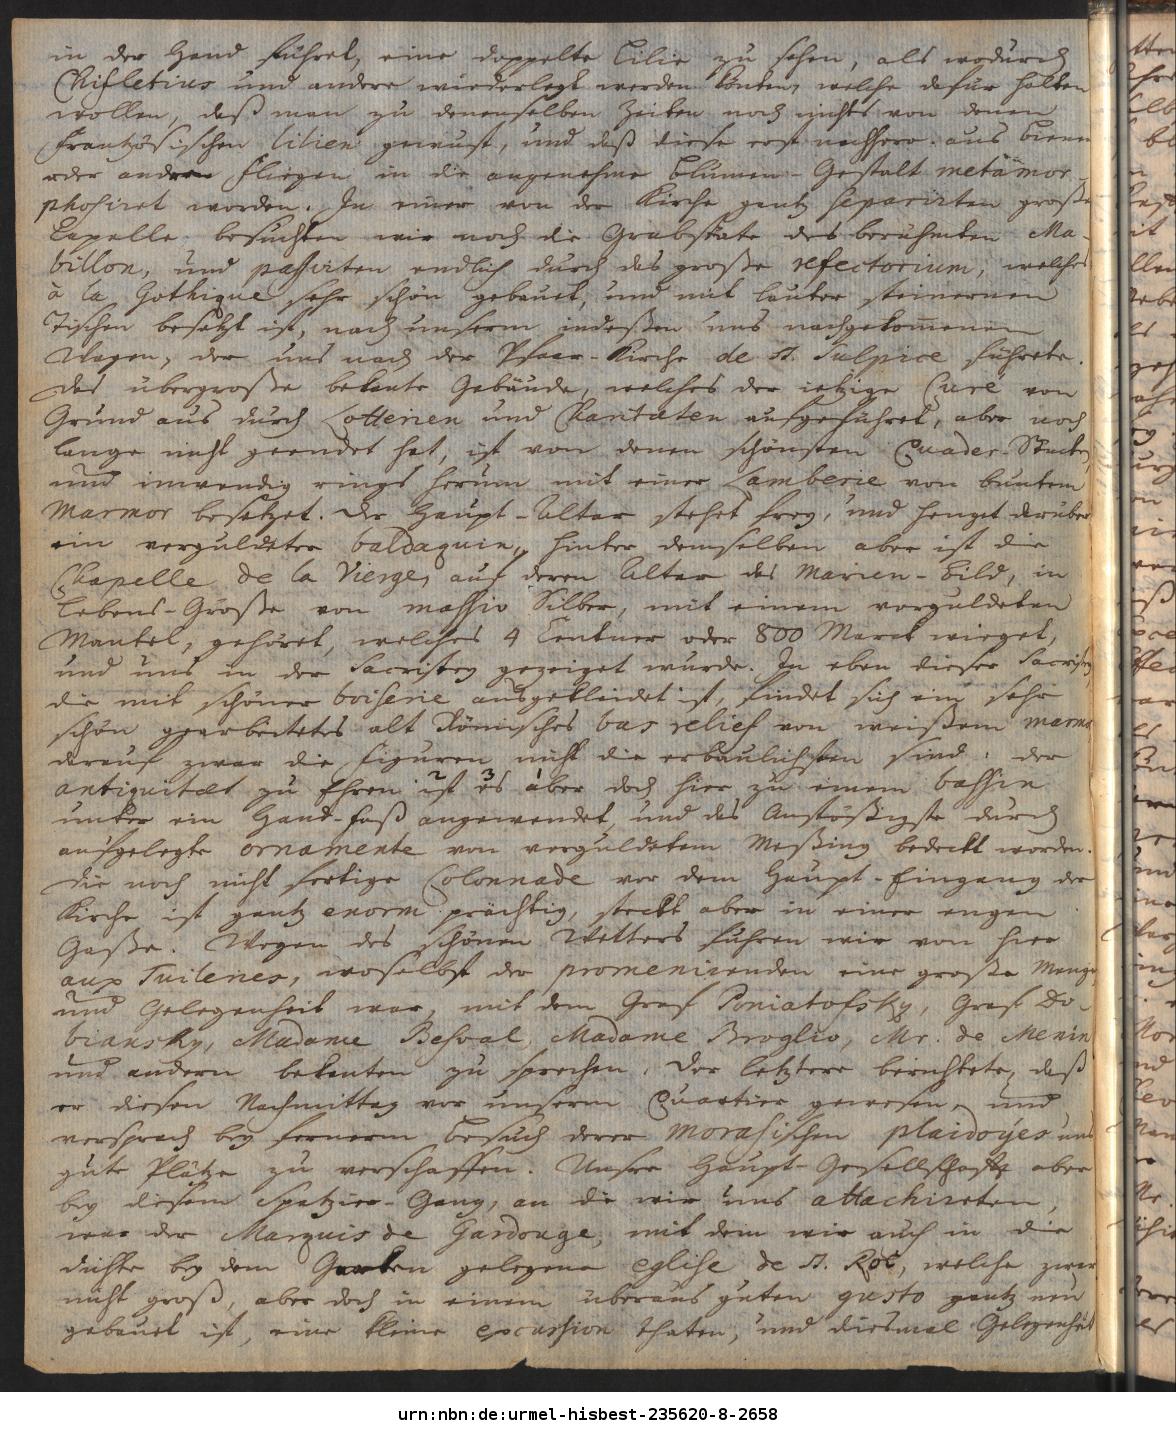 in der Hand führet, eine doppelte Lilie zu sehen, als wodurch
Chifletius und andere wiederlegt werden können, welche dafür halten
wollen, daß man zu denenselben Zeiten noch nichts von denen
Frantzösischen lilien gewust, und daß diese erst nachhero aus bienen
oder andern Fliegen in die angenehme Blumen-Gestalt metamor-
phosiret worden. In einer von der Kirche gantz separirten große
Capelle besuchten wir noch die Grabstäte des berühmten Ma-
billon, und passirten endlich durch das große refectorium, welches
à la Gothique sehr schön gebauet, und mit lauter steinernen
Tischen besetzt ist, nach unserm indeßen uns nachgekommenen
Wagen, der uns nach der Pfarr-Kirche de St. Sulpice führete.
Das übergroße bekante Gebäude, welches der ietzige Curé von
Grund aus durch Lotterien und Charitæten aufgeführet, aber noch
lange nicht geendet hat, ist von denen schönsten Quader-Stücken,
und inwendig rings herum mit einer Lamberie von buntem
Marmor besetzet. Der Haupt-Altar stehet frey, und henget darüber
ein verguldeter baldaquin, hinter demselben aber ist die
Chapelle de la Vierge, auf deren Altar das Marien-Bild, in
Lebens-Größe von massiv Silber, mit einem verguldeten
Mantel, gehöret, welches 4 Centner oder 800 Marck wieget,
und uns in der Sacristey gezeiget wurde. In eben dieser Sacristey,
die mit schöner boiserie ausgekleidet ist, findet sich ein sehr
schön gearbeitetes alt Römisches bas relief von weißem marmor
darauf zwar die Figuren nicht die erbaulichsten sind, der
antiquitæt zu Ehren ist es aber doch hier zu einem bassin
unter ein Hand-Faß angewendet, und das Anstößigste durch
aufgelegte ornamente von verguldetem Meßing bedeckt worden.
Die noch nicht fertige Colonnade vor dem Haupt-Eingang der
Kirche ist gantz enorm prächtig, steckt aber in einer engen
Gaße. Wegen des schönen Wetters fuhren wir von hier
aux Tuileries, woselbst der promenirenden eine große Menge,
und Gelegenheit war, mit dem Graf Poniatofsky, Graf Do-
biansky, Madame Besval, Madame Broglio, Mr. de Menin
und andern bekanten zu sprechen. Der letztere berichtete, daß
er diesen Nachmittag vor unserm Quartier gewesen, und
versprach bey fernerm Besuch derer Morasischen plaidoyes uns
gute Plätze zu verschaffen. Unsre Haupt-Gesellschafft aber
bey diesem Spatzier-Gang, an die wir uns attachireten,
war der Marquis de Gardouge, mit dem wir auch in die
dichte bey dem Garten gelegene eglise de St. Roc, welche zwar
nicht groß, aber doch in einem überaus guten gusto gantz neu
gebauet ist, eine kleine excursion thaten, und diesmal Gelegenheit
urn:nbn:de:urmel-hisbest-235620-8-2658